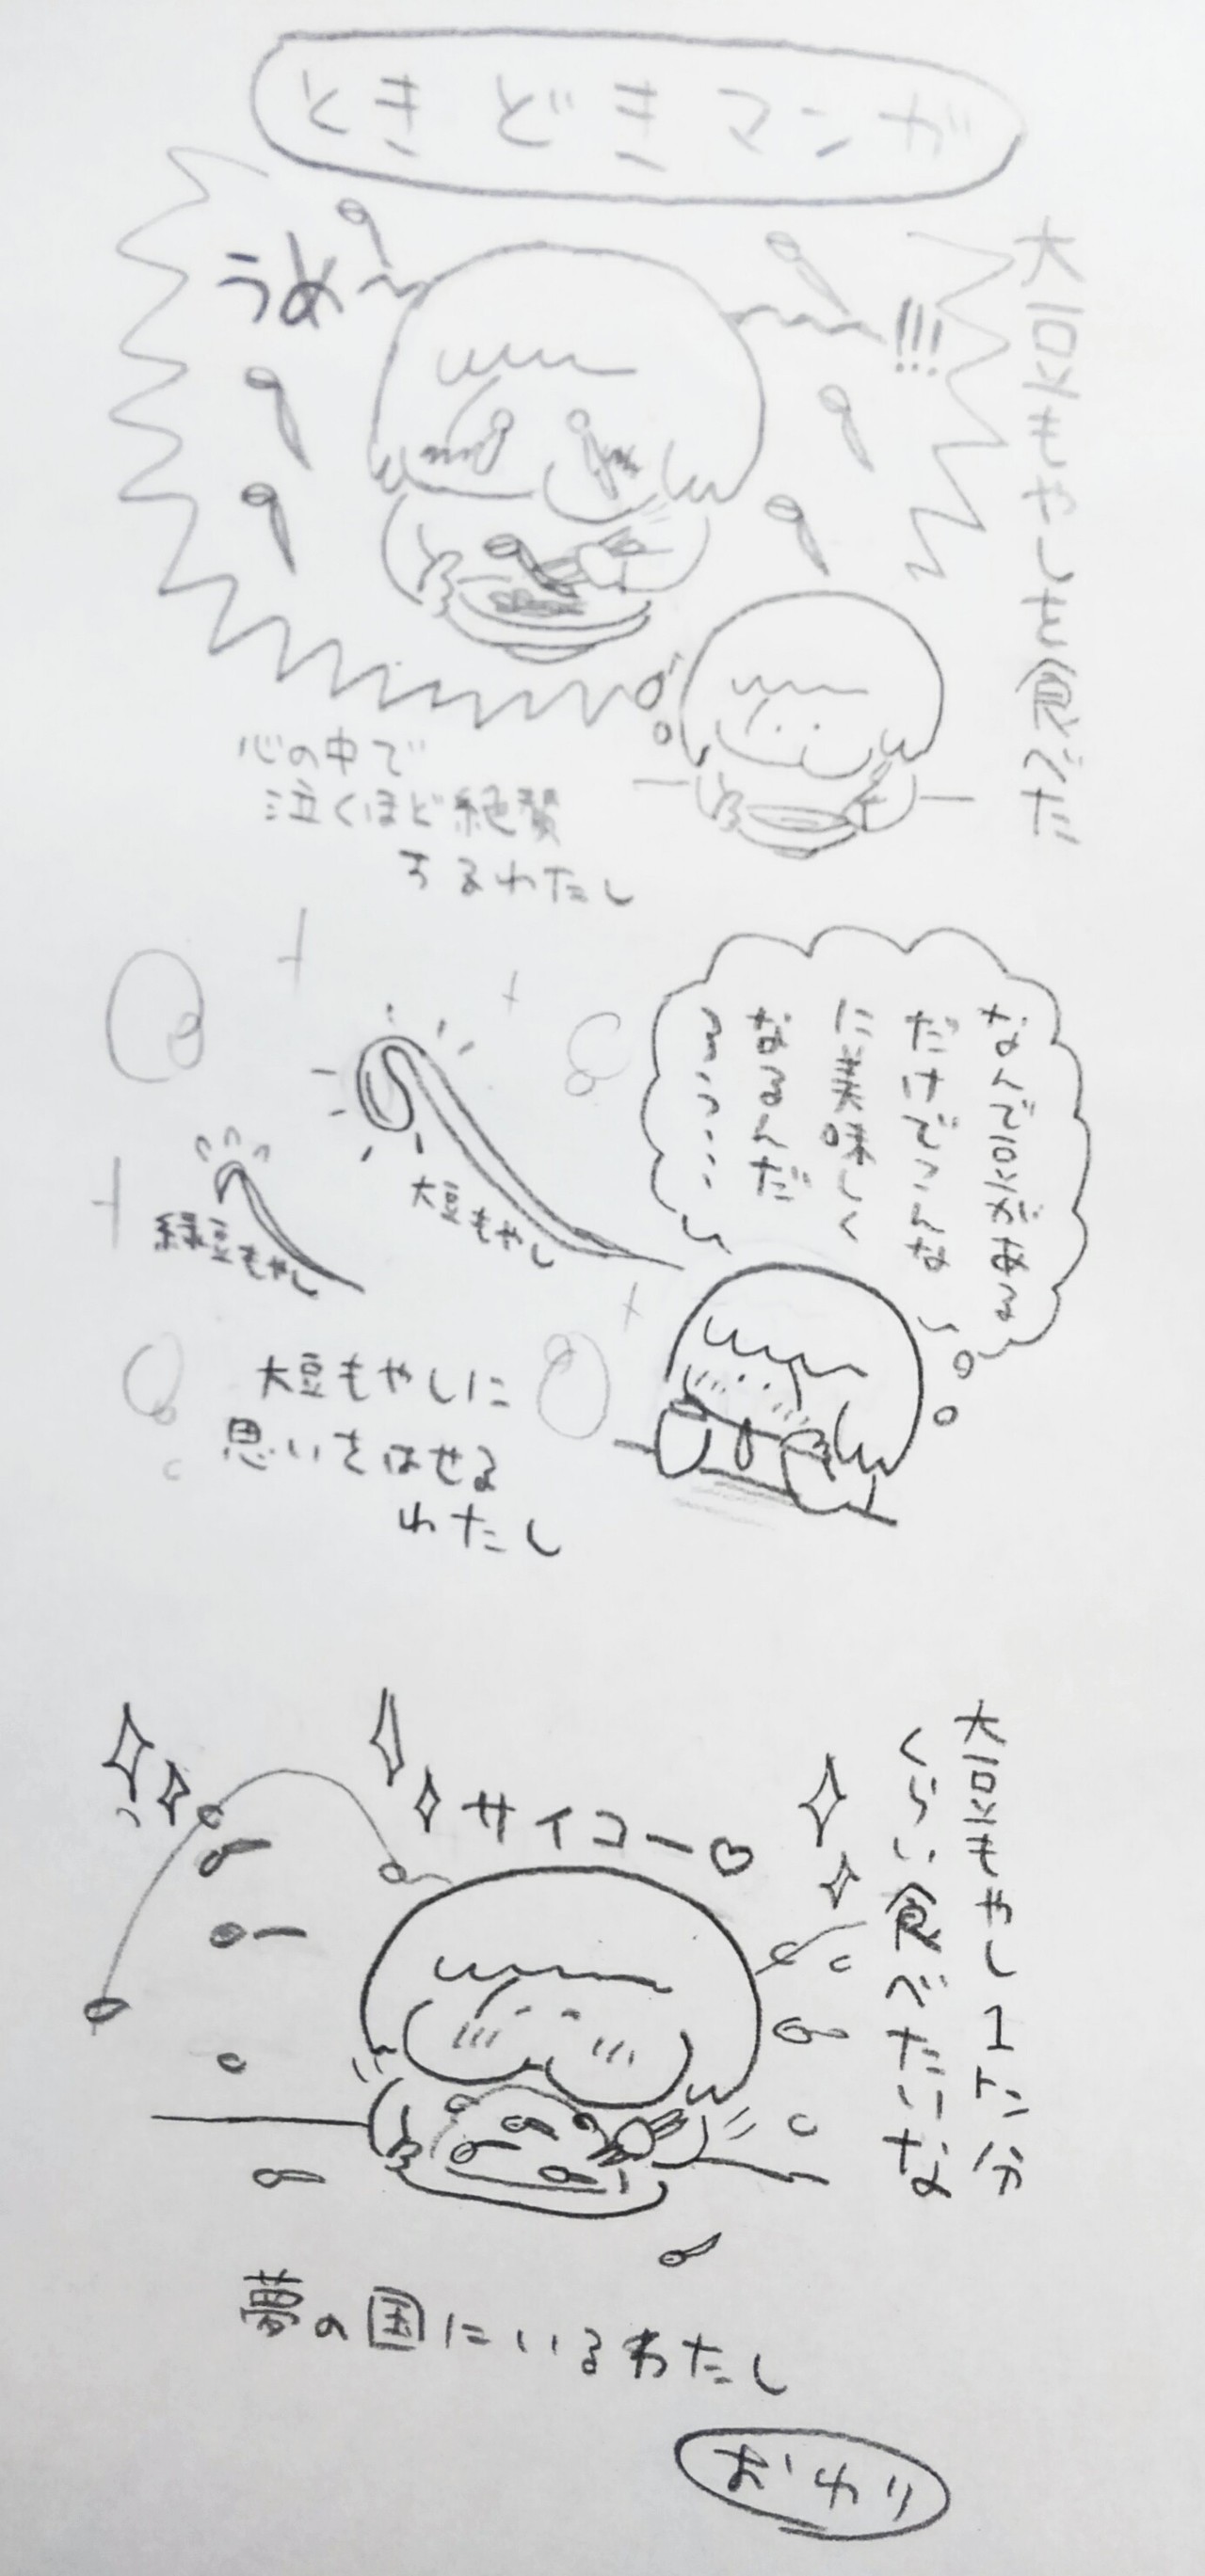 ときどきマンガ
大豆もやしを食べた
うめ〜〜〜!!!
心の中で
泣くほど絶賛
するわたし
なんで豆がある
だけでこんな
に美味しく
なるんだ
ろう……
大豆もやし
緑豆もやし
大豆もやしに
思いをはせる
わたし
大豆もやし1トン分
くらい食べたいな
サイコー♡
夢の国にいるわたし
おわり